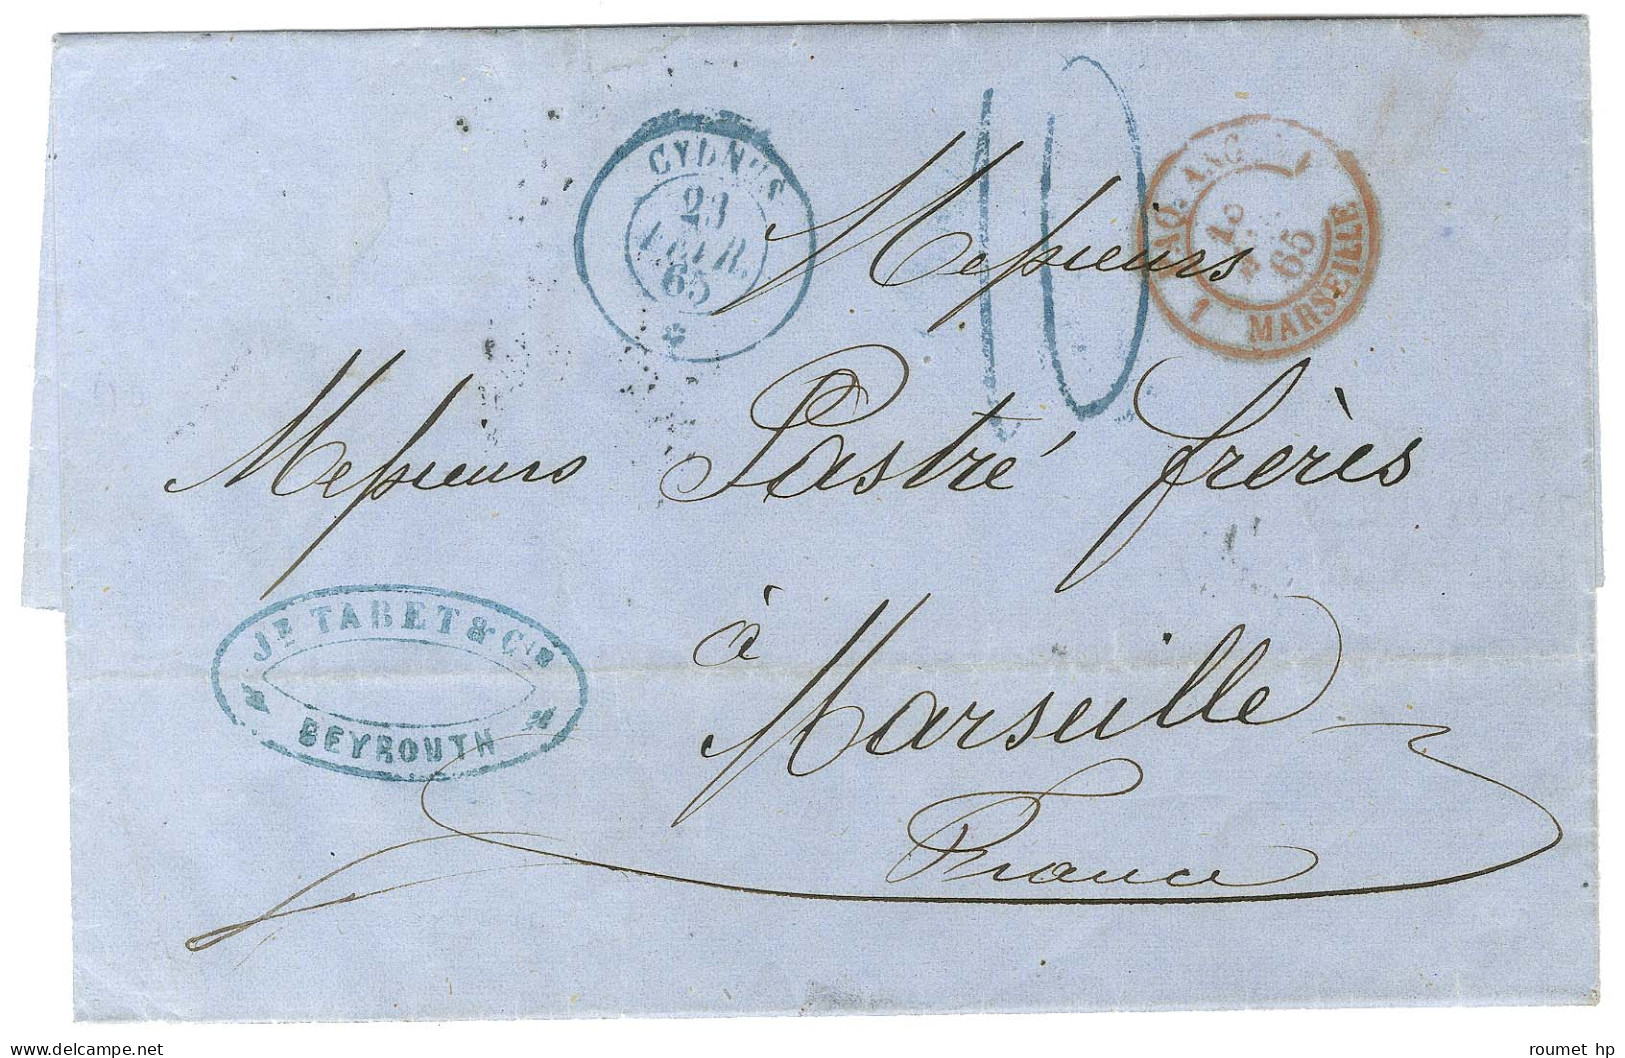 CYDNUS
23
FEVR.
65
10
PAQ. ANG.
65
1 MARSEILLE
Messieurs
Messieurs Pastré frères
à
Marseille
France
JH TABET & CIE
BEYROUTH
roumet hp
delcampe.net